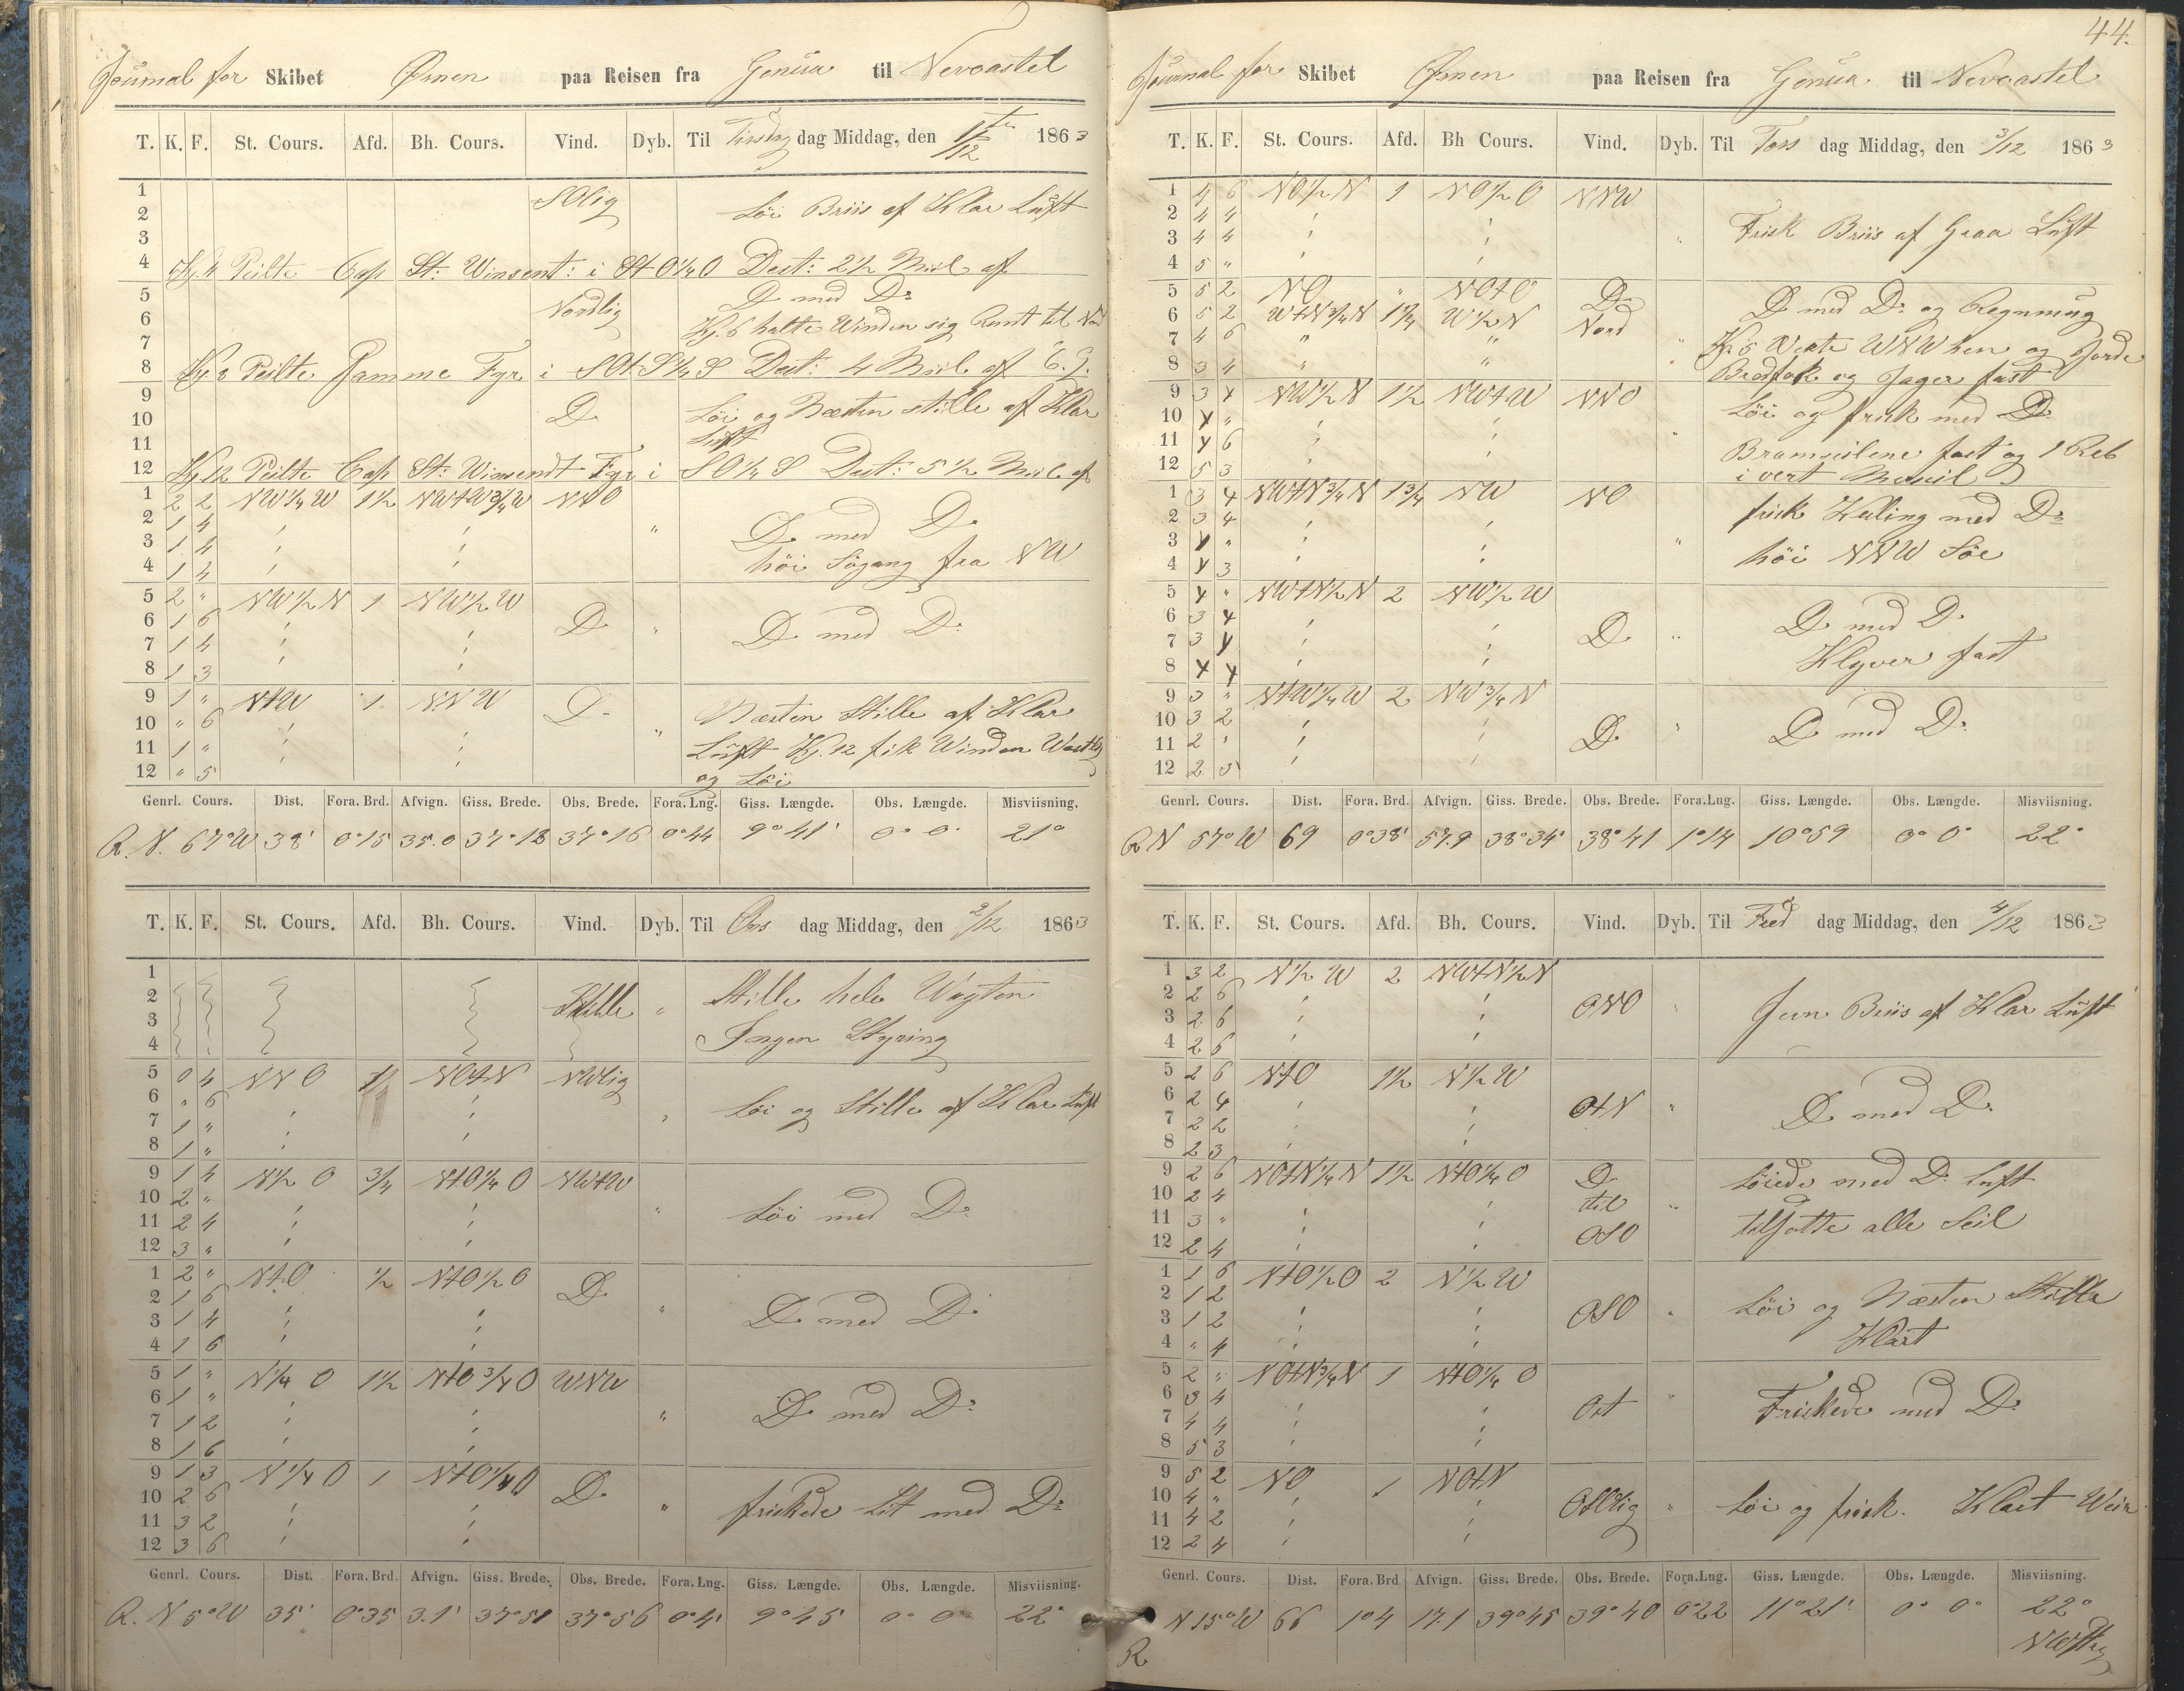 Journal for Skibet Ørnen paa Reisen fra Genua til Newcastel
T. K. F. St. Cours. Afd. Bh. Cours. Vind. Dyb. Til Tirsdag dag Middag, den 1/12 1863
1 SOlig Löi Briis af Klar Luft
2
3
4 Kl. 4 Peilte Cap St: Winsent: i StO¼O Dest: 2½ Miil af
5 D med D:
6 Nordlig Kl. 6 halte Winden sig Runt til Nord
7
8 Kl. 8 Peilte Samme Fyr i SOtS¼S Dest: 4 Miil af
9
10 D Löi og Næsten stille af Klar
11 Luft
12 Kl. 12 Peilte Cap St: Winsendt Fyr i SO¼S Dest: 5½ Miil af
1 2 2 NW¼W 1½ NWtW¾W NNO
2 1 4 " D med D.
3 1 4 höi Sögang fra NW
4 1 4
5 2 " NW½N 1 NW½W
6 1 6 D " D med D.
7 1 4
8 1 3
9 1 " NtW 1 NNW D Næsten Stille af Klar
10 " 6 Luft Kl. 12 fik Winden Westlig
11 1 " og Löi
12 " 5
Genrl. Cours. Dist. Fora. Brd. Afvign. Giss. Brede. Obs. Brede. Fora. Lng. Giss. Længde. Obs. Længde. Misviisning.
R. N. 67°W 38' 0°15 35.0 37°18 37°16 0°44 9°41' 0° 0' 21°
T. K. F. St. Cours. Afd. Bh. Cours. Vind. Dyb. Til Ons dag Middag, den 2/12 1863
1 Stille hele Wagten
2 Stille "
3 Ingen Styring
4
5 0 4 NNO ½ NOtN NWlig
6 " 6 Löi og Stille af Klar Luft
7 1 "
8 1 "
9 1 4 N½O ¾ NtO¼O NWtW
10 2 " " Löi med D:
11 2 4
12 3 "
1 2 " NtO ½ NtO½O D
2 1 6 " D med D:
3 1 4
4 1 6
5 1 " N¼O 1½ NtO¾O WNW
6 1 " D med D:
7 1 2 "
8 1 6
9 1 3 N¼O 1 NtO¼O D
10 2 6 " friskede Lit med D:
11 3 2
12 3 6
Genrl. Cours. Dist. Fora. Brd. Afvign. Giss. Brede. Obs. Brede. Fora. Lng. Giss. Længde. Obs. Længde. Misviisning.
R. N 5°W 35' 0°35 3.1' 37°51 37°56 0°4' 9°45' 0° 0° 22°
44.
Journal for Skibet Ørnen paa Reisen fra Genua til Newcastel
T. K. F. St. Cours. Afd. Bh Cours. Vind. Dyb. Til Tors dag Middag, den 3/12 1863
1 4 6 NO½N 1 NO½O NNW
2 4 4 Frisk Briis af Graa Luft
3 4 4 "
4 5 "
5 5 2 NO " NOtO D: D med D: og Regning
6 5 2 WtN¾N 1¾ W½N Nord
7 4 6 " " " Kl. 5 Vente WNW hen og Gjorde
8 3 4 " " " Bredfok og Jager fast
9 3 4 NW½N 1½ NWtW NNO Löi og frisk med D:
10 4 "
11 4 6 " Bramseilene fast og 1 Reb
12 5 3 i vert Merseil
1 3 4 NWtN¾N 1¾ NW NO frisk Kuling med D:
2 3 4
3 4 " " höi NNW Söe
4 4 3
5 4 " NWtN½N 2 NW½W
6 3 4 D med D.
7 3 4 D "
8 4 4 Klyver fast
9 3 " NtW¼W 2 NW¾N
10 3 2 D. " D med D:
11 2 "
12 2 5
Genrl. Cours. Dist. Fora. Brd. Afvign. Giss. Brede. Obs. Brede. Fora.Lng. Giss. Længde. Obs. Længde. Misviisning.
R N 57°W 69 0°38' 57.9 38°34' 38°41 1°14 10°59 0° 0' 22°
T. K. F. St. Cours. Afd. Bh. Cours. Vind. Dyb. Til Fred dag Middag, den 4/12 1863
1 3 2 N½W 2 NWtN½N
2 2 6 ONO " Jevn Briis af Klar Luft
3 2 6
4 2 6
5 2 6 NtO 1½ N½W
6 2 4 OtN " D med D:
7 2 2
8 2 3
9 2 6 NOtN¼N 1½ NtO¼O D. Löiede med D: Luft
10 2 4 til "
11 3 " OSO tilsatte alle Seil
12 2 4
1 1 6 NtO½O 2 N½W
2 1 2 Löi og Næsten Stille
3 1 2 OSO "
4 " 4 Klart
5 2 " NOtN¾N 1 NtO¼O
6 3 4 Ost " Friskede med D:
7 4 4
8 5 3
9 5 2 NO 1 NOtN
10 4 " OSOlig " Löi og frisk. Klart Veir
11 4 2
12 2 4
Genrl. Cours. Dist. Fora. Brd Afvign. Giss. Brede. Obs. Brede. Fora.Lng. Giss. Længde. Obs. Længde. Misviisning.
R N 15°W 66 1°4 17.1 39°45 39°40 0°22 11°21' 0° 0° 22°